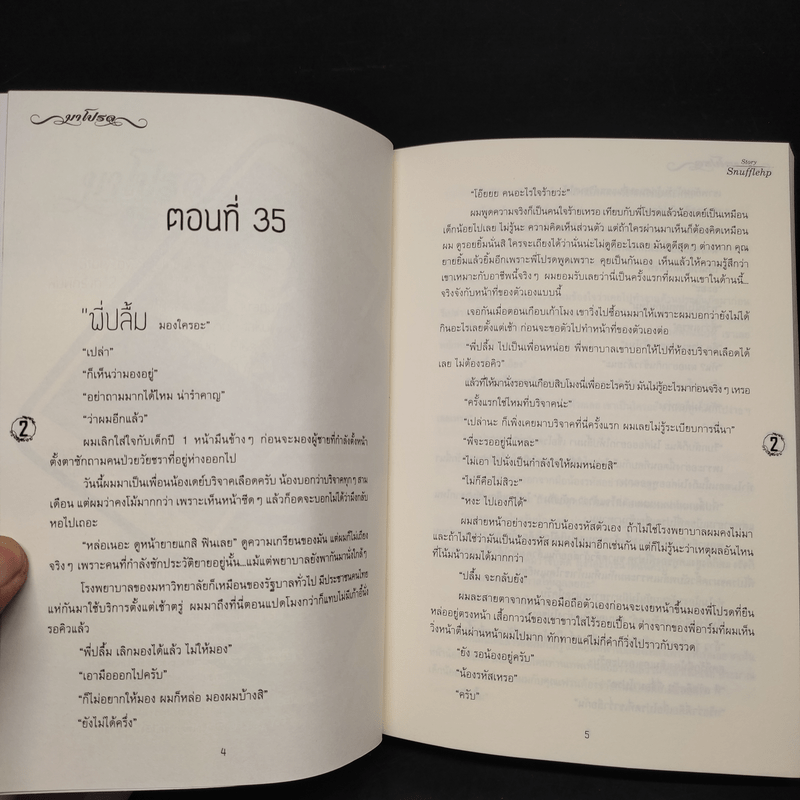 มาโปรด
ตอนที่ 35
"พี่ปลื้ม มองใครอะ"
"เปล่า"
"ก็เห็นว่ามองอยู่"
"อย่าถามมากได้ไหม น่ารำคาญ"
"ว่าผมอีกแล้ว"
ผมเลิกใส่ใจกับเด็กปี 1 หน้ามึนข้างๆ ก่อนจะมองผู้ชายที่กำลังตั้งหน้า
ตั้งตาซักถามคนป่วยวัยชราที่อยู่ห่างออกไป
วันนี้ผมมาเป็นเพื่อนน้องเดย์บริจาคเลือดครับ น้องบอกว่าบริจาคทุกๆ สาม
เดือน แต่ผมว่าคงโม้มากกว่า เพราะเห็นหน้าซีดๆ แล้วก็อดจะบอกไม่ได้ว่ามึงกลับ
หอไปเถอะ
"หล่อเนอะ ดูหน้ายายแกสิ ฟินเลย" ดูความเกรียนของมัน แต่ผมก็ไม่เถียง
จริงๆ เพราะคนที่กำลังซักประวัติยายอยู่นั้น...แม้แต่พยาบาลยังพากันมานั่งใกล้ๆ
โรงพยาบาลของมหาวิทยาลัยก็เหมือนของรัฐบาลทั่วไป มีประชาชนคนไทย
แห่กันมาใช้บริการตั้งแต่เช้าตรู่ ผมมาถึงที่นี่ตอนแปดโมงกว่าก็แทบไม่มีเก้าอี้นั่ง
รอคิวแล้ว
"พี่ปลื้ม เลิกมองได้แล้ว ไม่ให้มอง"
"เอามือออกไปครับ"
"ก็ไม่อยากให้มอง ผมก็หล่อ มองผมบ้างสิ"
"ยังไม่ได้ครึ่ง"
2
4
Story
Snufflehp
"โอ๊ยยย คนอะไรใจร้ายว่ะ"
ผมพูดความจริงก็เป็นคนใจร้ายเหรอ เทียบกับพี่โปรดแล้วน้องเดย์เป็นเหมือน
เด็กน้อยไปเลย ไม่รู้นะ ความคิดเห็นส่วนตัว แต่ถ้าใครผ่านมาเห็นก็ต้องคิดเหมือน
ผม ดูรอยยิ้มนั่นสิ ใครจะเถียงได้ว่านั่นน่ะไม่ดูดีอะไรเลย มันดูดีสุดๆ ต่างหาก คุณ
ยายยิ้มแล้วยิ้มอีกเพราะพี่โปรดพูดเพราะ คุยเป็นกันเอง เห็นแล้วให้ความรู้สึกว่า
เขาเหมาะกับอาชีพนี้จริงๆ ผมยอมรับเลยว่านี่เป็นครั้งแรกที่ผมเห็นเขาในด้านนี้...
จริงจังกับหน้าที่ของตัวเองแบบนี้
เจอกันเมื่อตอนเกือบเก้าโมง เขาวิ่งไปซื้อนมมาให้เพราะผมบอกว่ายังไม่ได้
กินอะไรเลยตั้งแต่เช้า ก่อนจะขอตัวไปทำหน้าที่ของตัวเองต่อ
"พี่ปลื้ม ไปเป็นเพื่อนหน่อย พี่พยาบาลเขาบอกให้ไปที่ห้องบริจาคเลือดได้
เลย ไม่ต้องรอคิว"
แล้วที่ให้มานั่งรอจนเกือบสิบโมงนี่เพื่ออะไรครับ มันไม่รู้อะไรมาก่อนจริงๆ เหรอ
"ครั้งแรกใช่ไหมที่บริจาคน่ะ"
"เปล่านะ ก็เพิ่งเคยมาบริจาคที่นี่ครั้งแรก ผมเลยไม่รู้ระเบียบการนี่นา"
"พี่จะรออยู่นี่แหละ"
"ไม่เอา ไปนั่งเป็นกำลังใจให้ผมหน่อยสิ"
"ไม่ก็คือไม่สิวะ"
"หงะ ไปเองก็ได้"
ผมส่ายหน้าอย่างระอากับน้องรหัสตัวเอง ถ้าไม่ใช่โรงพยาบาลผมคงไม่มา
และถ้าไม่ใช่ว่ามันเป็นน้องรหัส ผมคงไม่มาอีกเช่นกัน แต่ก็ไม่รู้นะว่าเหตุผลอันไหน
ที่โน้มน้าวผมได้มากกว่า
"ปลื้ม จะกลับยัง"
ผมละสายตาจากหน้าจอมือถือตัวเองก่อนจะเงยหน้าขึ้นมองพี่โปรดที่ยืน
หล่ออยู่ตรงหน้า เสื้อกาวน์ของเขาขาวใสไร้รอยเปื้อน ต่างจากของพี่อาร์มที่ผมเห็น
วิ่งหน้าตื่นผ่านหน้าผมไปมาก ทักทายแค่ไม่กี่คำก็วิ่งไปราวกับจรวด
"ยัง รอน้องอยู่ครับ"
"น้องรหัสเหรอ"
"ครับ"
2
5